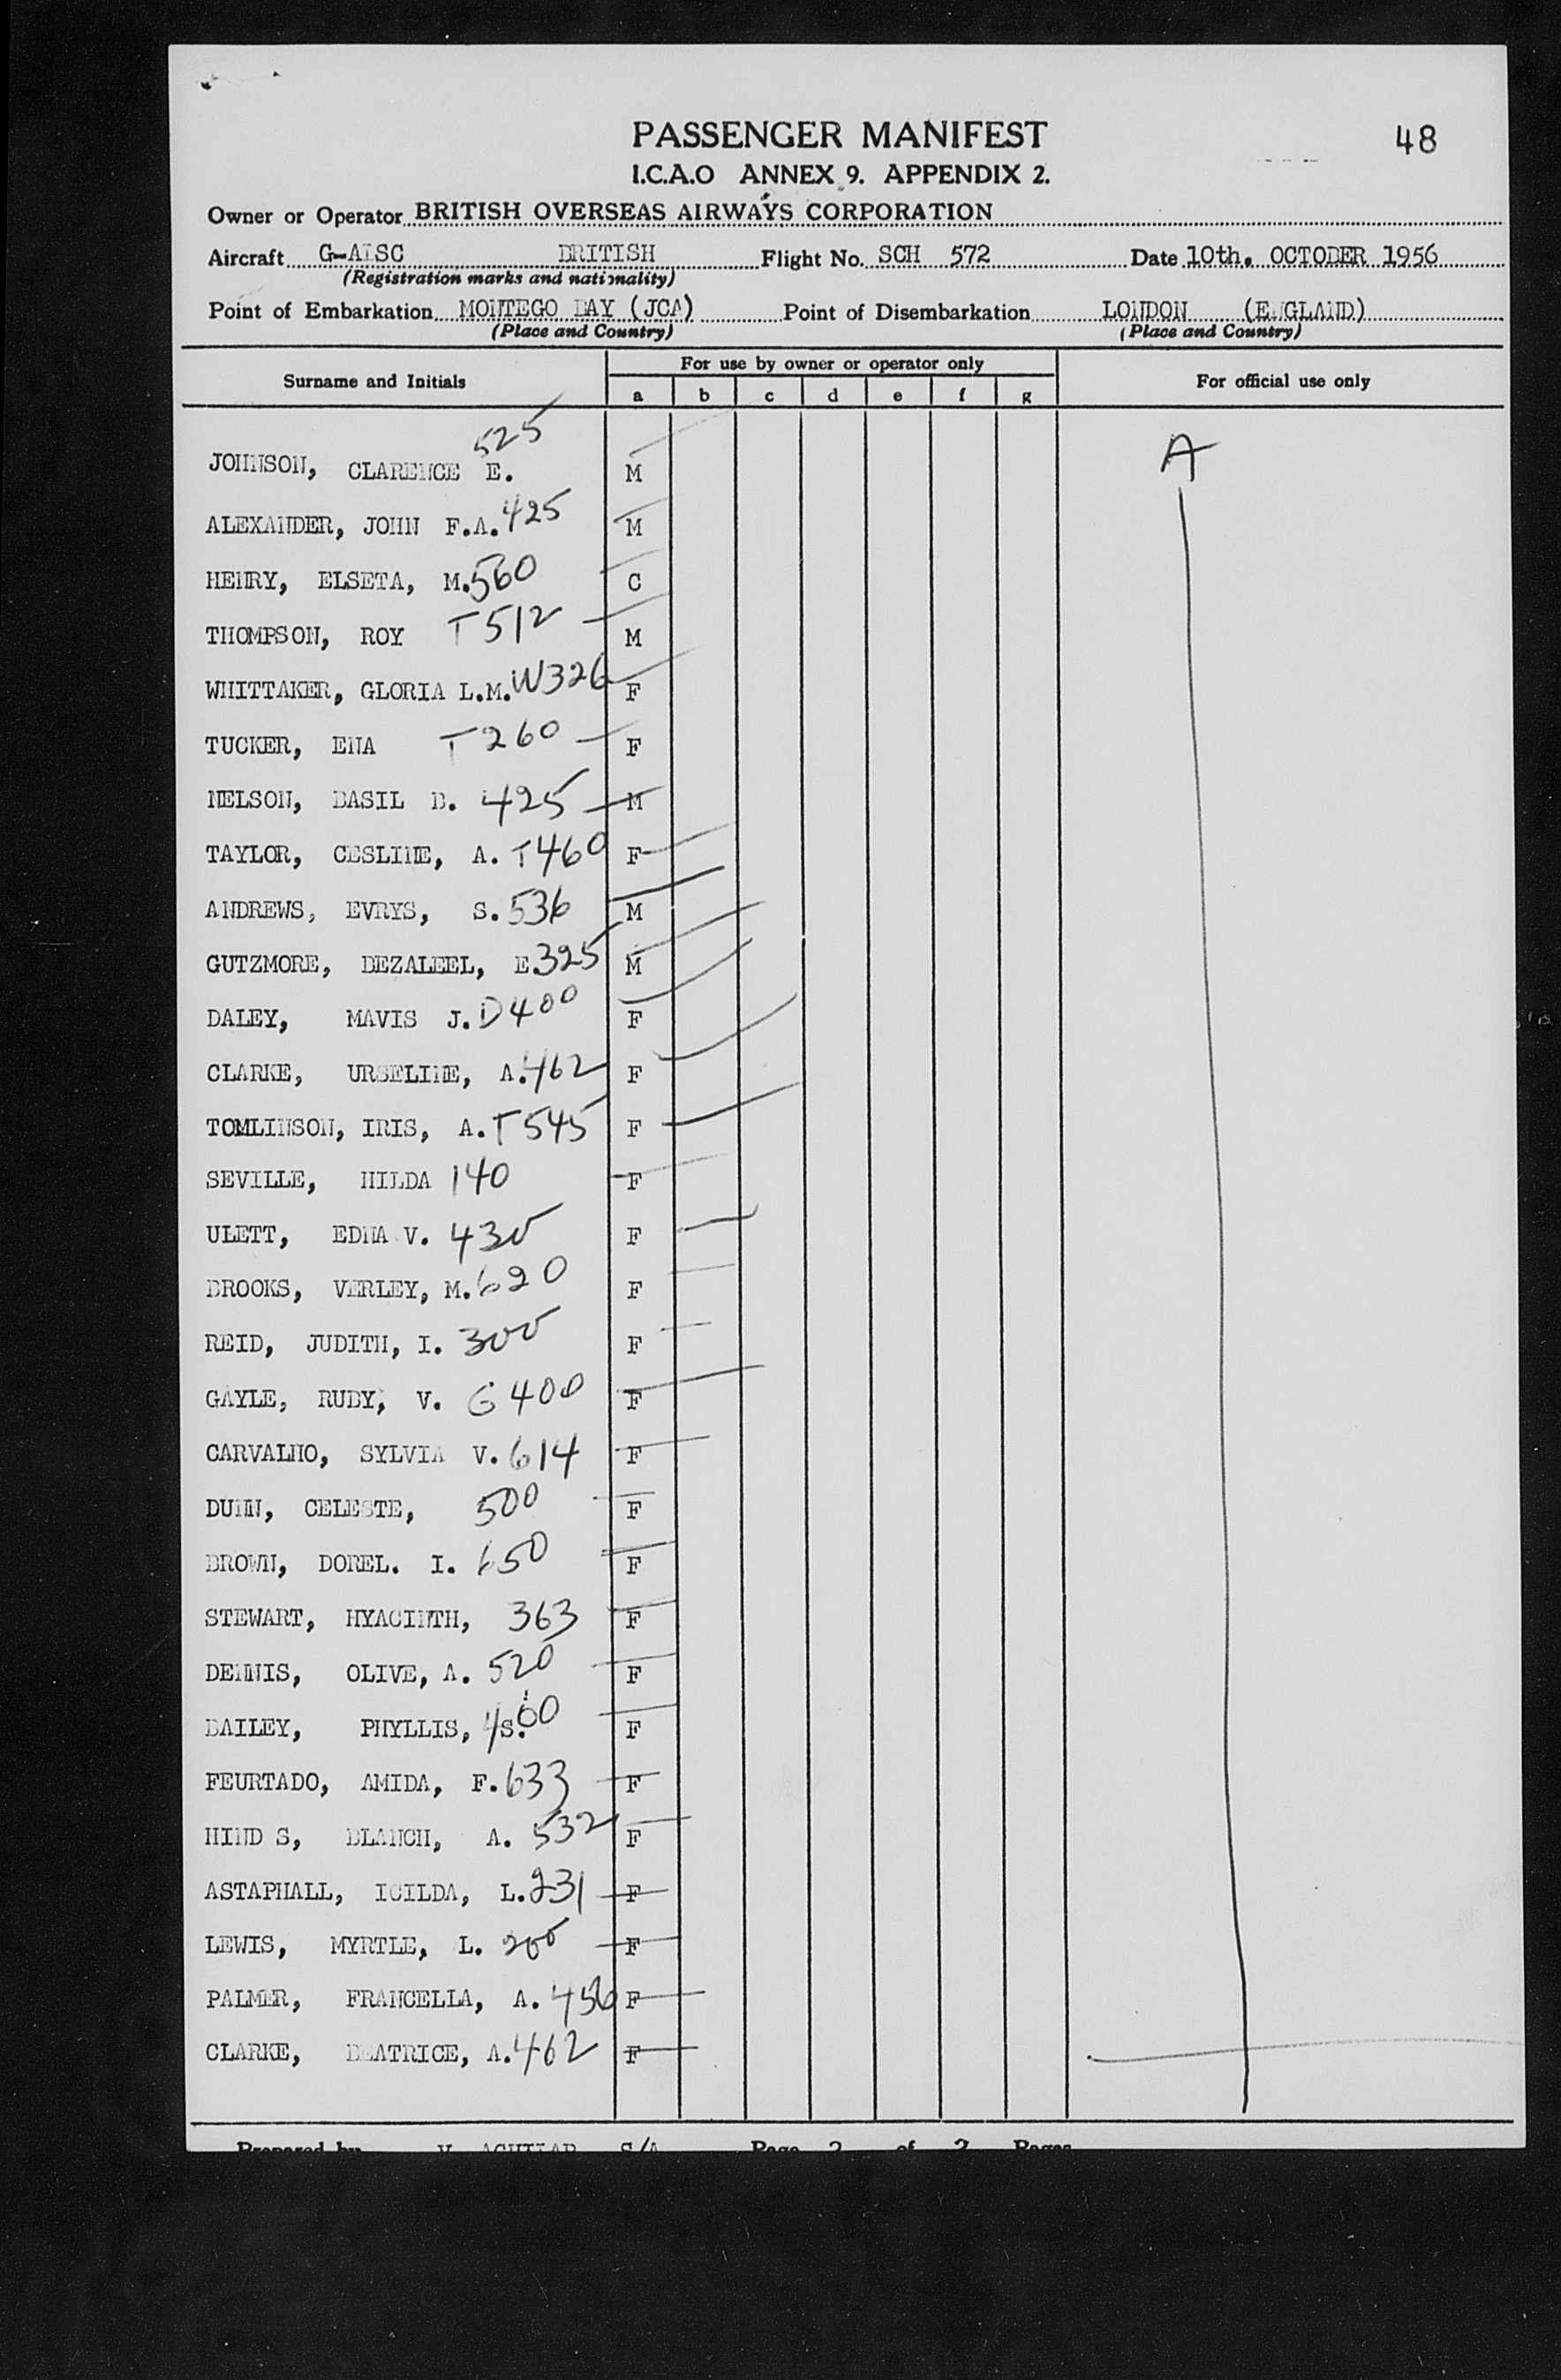 PASSENGER MANIFEST
48
I.C.A.O ANNEX 9. APPENDIX 2.
Owner or Operator BRITISH OVERSEAS AIRWAYS CORPORATION
Aircraft G-ALSC BRITISH Flight No. SCH 572 Date 10th. OCTOBER 1956
(Registration marks and nationality)
Point of Embarkation MONTEGO BAY (JCA) Point of Disembarkation LONDON (ENGLAND)
(Place and Country) (Place and Country)
Surname and Initials For use by owner or operator only For official use only
a b c d e f g
525
JOHNSON, CLARENCE E. M A
ALEXANDER, JOHN F.A. 425 M
HENRY, ELSETA, M. 560 C
THOMPSON, ROY T512 M
WHITTAKER, GLORIA L.M. W326 F
TUCKER, ENA T260 F
NELSON, BASIL B. 425 M
TAYLOR, CESLINE, A. T460 F
ANDREWS, EVRYS, S. 536 M
GUTZMORE, BEZALEEL, E 325 M
DALEY, MAVIS J. D400 F
CLARKE, URSELINE, A. 462 F
TOMLINSON, IRIS, A. T545 F
SEVILLE, HILDA 140 F
ULETT, EDNA V. 430 F
BROOKS, VERLEY, M. 620 F
REID, JUDITH, I. 300 F
GAYLE, RUBY, V. G400 F
CARVALHO, SYLVIA V. 614 F
DUNN, CELESTE, 500 F
BROWN, DOREL. I. 650 F
STEWART, HYACINTH, 363 F
DENNIS, OLIVE, A. 520 F
BAILEY, PHYLLIS, S. 400 F
FEURTADO, AMIDA, F. 633 F
HIND S, BLANCH, A. 532 F
ASTAPHALL, ICILDA, L. 231 F
LEWIS, MYRTLE, L. 200 F
PALMER, FRANCELLA, A. 456 F
CLARKE, BEATRICE, A. 462 F
Prepared by V. AGUILAR S/A Page 2 of 2 Pages